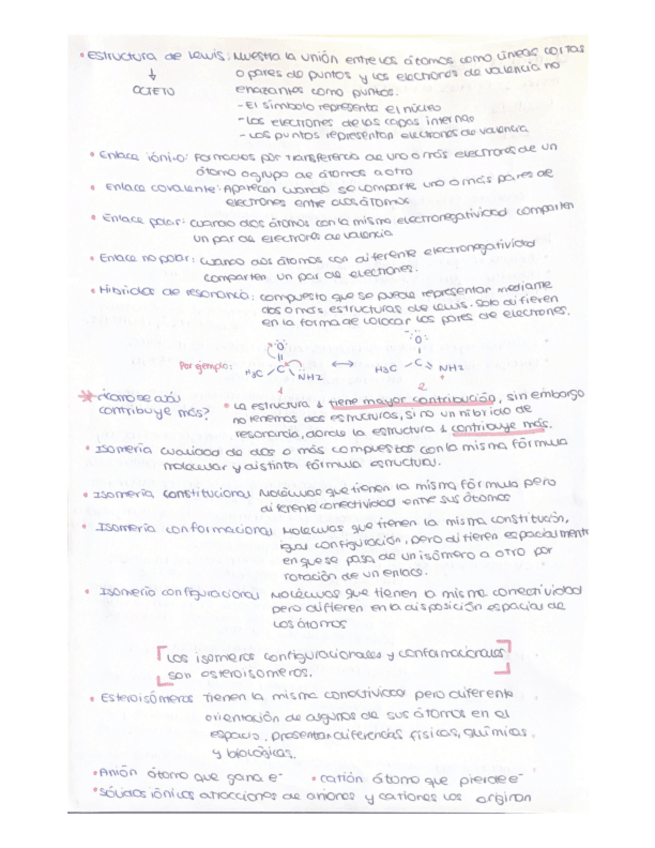 • Estructura de Lewis: Muestra la unión entre los átomos como líneas cortas
↓ o pares de puntos y los electrones de valencia no
OCTETO enlazantes como puntos.
- El símbolo representa el núcleo
- Los electrones de las capas interna
- Los puntos representan electrones de valencia
• Enlace iónico: Formados por transferencia de uno o más electrones de un
átomo o grupo de átomos a otro
• Enlace covalente: Aparecen cuando se comparte uno o más pares de
electrones entre dos átomos
• Enlace polar: cuando dos átomos con la misma electronegatividad comparten
un par de electrones de valencia
• Enlace no polar: cuando dos átomos con diferente electronegatividad
comparten un par de electrones.
• Híbridos de resonancia: compuesto que se puede representar mediante
dos o más estructuras de Lewis. Solo difieren
en la forma de colocar los pares de electrones.
Por ejemplo: H3C C O NH2 ↔ H3C C O NH2
1 2
* ¿Cómo se cuál
contribuye más?
• La estructura 1 tiene mayor contribución, sin embargo
no tenemos dos estructuras, si no un híbrido de
resonancia, donde la estructura 1 contribuye más.
• Isomería cualidad de dos o más compuestos con la misma fórmula
molecular y distinta fórmula estructural.
• Isomería constitucional Moléculas que tienen la misma fórmula pero
diferente conectividad entre sus átomos
• Isomería conformacional Moléculas que tienen la misma constitución,
igual configuración, pero difieren espacialmente
en que se pasa de un isómero a otro por
rotación de un enlace.
• Isomería configuracional Moléculas que tienen la misma conectividad
pero difieren en la disposición espacial de
los átomos
Los isomeros configuracionales y conformacionales
son estereoisomeros.
• Esteroisómeros Tienen la misma conectividad pero diferente
orientación de algunos de sus átomos en el
espacio. Presentan diferencias físicas, químicas
y biológicas.
• Anión átomo que gana e- • catión átomo que pierde e-
• Sólidos iónicos atracciones de aniones y cationes los originan